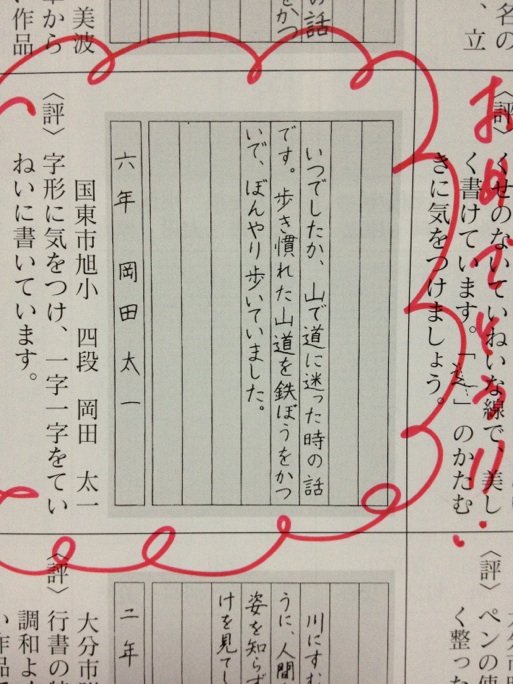 名の
、立
の話
をかつ
美波
から
作品
おめでとう!!
〈評〉
くせのないていねいな線で、美し
く書けています。「辶」のかたむ
きに気をつけましょう。
いつでしたか、山で道に迷った時の話
です。歩き慣れた山道を鉄ぼうをかつ
いで、ぼんやり歩いていました。
六年 岡田太一
国東市旭小 四段 岡田 太一
〈評〉字形に気をつけ、一字一字をてい
ねいに書いています。
〈評〉
ペンの使
く整った
川にすむ
うに、人間
姿を知らず
けを見てし
二年
大分市
〈評〉
行書の
調和よく
い作品